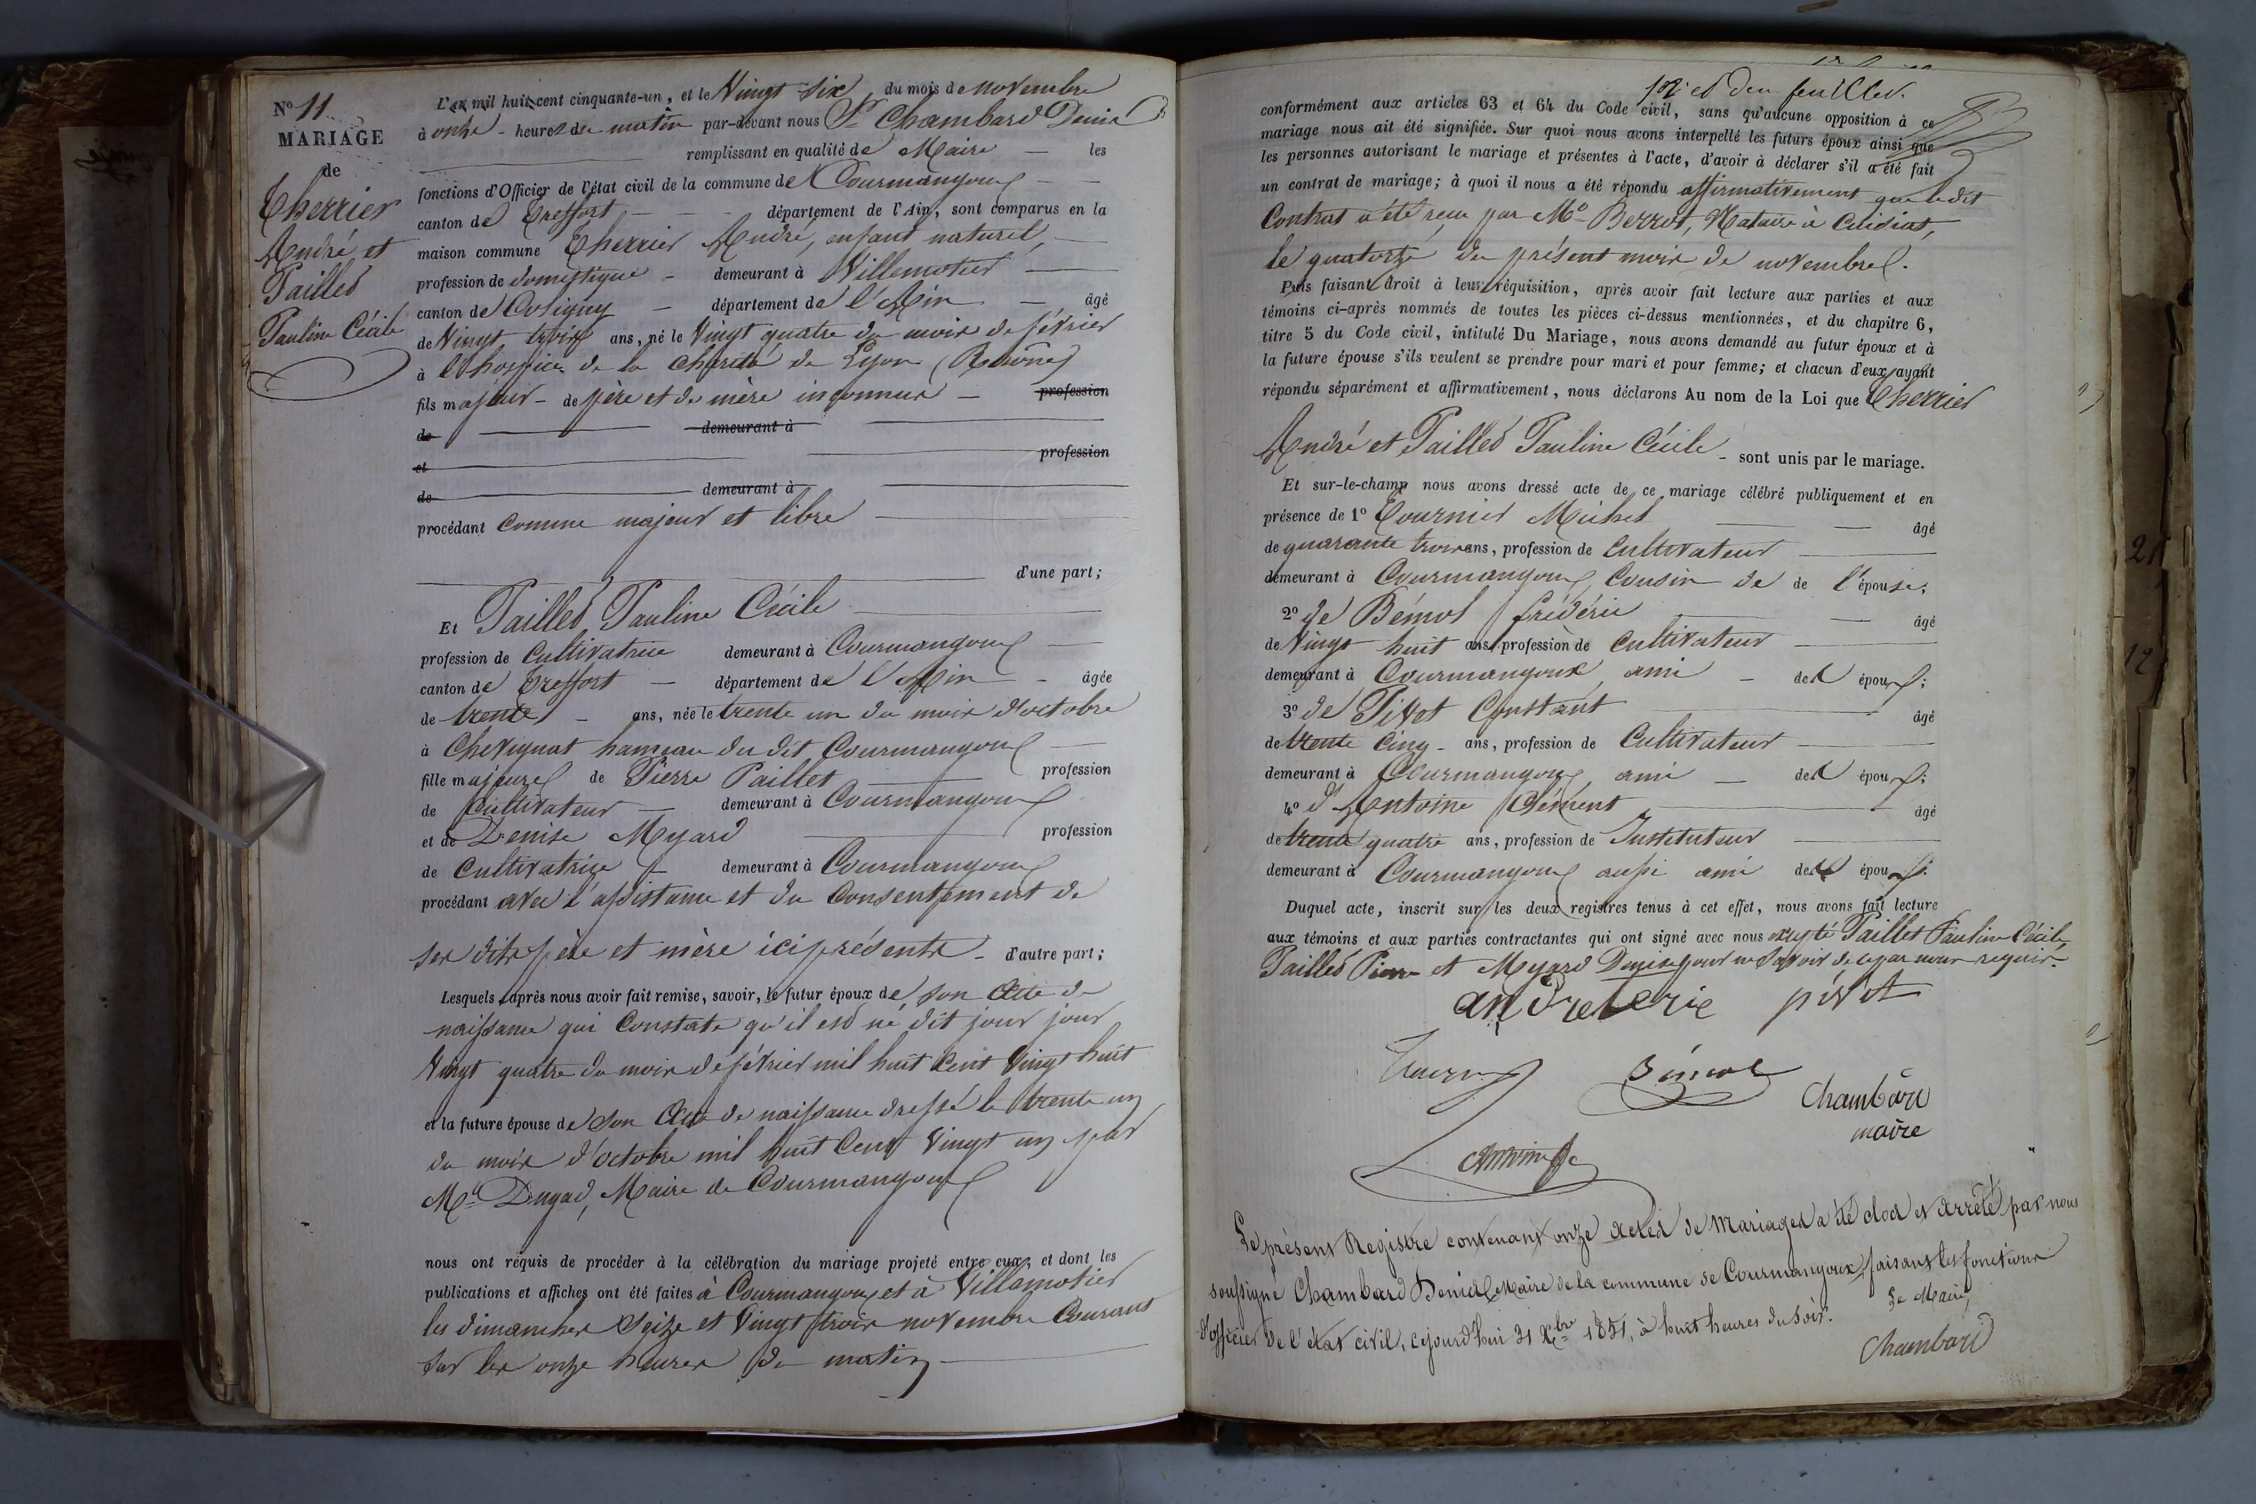 N° 11
MARIAGE
de
Therrier
André et
Paillet
Pauline Cécile
L'an mil huit cent cinquante-un, et le Vingt six du mois de novembre
à onze heures du matin par-devant nous Chambard Denis
remplissant en qualité de Maire les
fonctions d'Officier de l'état civil de la commune de Courmangoux
canton de Treffort département de l'Ain, sont comparus en la
maison commune Therrier André, enfant naturel,
profession de domestique demeurant à Villemotier
canton de Coligny département de l'Ain âgé
de Vingt trois ans, né le Vingt quatre du mois de février
à l'hospice de la charité de Lyon (Rhône)
fils majeur de père et de mère inconnus profession
de demeurant à
et profession
de demeurant à
procédant comme majeur et libre
d'une part;
Et Paillet Pauline Cécile
profession de Cultivatrice demeurant à Courmangoux
canton de Treffort département de l'Ain âgée
de trente ans, née le trente un du mois d'octobre
à Chevignat hameau du dit Courmangoux
fille majeure de Pierre Paillet profession
de Cultivateur demeurant à Courmangoux
et de Denise Myard profession
de Cultivatrice demeurant à Courmangoux
procédant avec l'assistance et du Consentement de
ses dits père et mère ici présents d'autre part;
Lesquels après nous avoir fait remise, savoir, le futur époux de son Acte de
naissance qui Constate qu'il est né dit jour jour
Vingt quatre du mois de février mil huit Cent Vingt huit
et la future épouse de son Acte de naissance dressé le trente un
du mois d'octobre mil huit Cent Vingt un par
Mr Dugad, Maire de Courmangoux
nous ont requis de procéder à la célébration du mariage projeté entre eux, et dont les
publications et affiches ont été faites à Courmangoux et à Villemotier
les dimanches Seize et Vingt trois novembre Courant
sur les onze heures du matin
feuillet.
conformément aux articles 63 et 64 du Code civil, sans qu'aucune opposition à ce
mariage nous ait été signifiée. Sur quoi nous avons interpellé les futurs époux ainsi que
les personnes autorisant le mariage et présentes à l'acte, d'avoir à déclarer s'il a été fait
un contrat de mariage; à quoi il nous a été répondu affirmativement que le dit
Contrat a été reçu par Me Berrot, Notaire à Cuisiat,
le quatorze du présent mois de novembre.
Puis faisant droit à leur réquisition, après avoir fait lecture aux parties et aux
témoins ci-après nommés de toutes les pièces ci-dessus mentionnées, et du chapitre 6,
titre 5 du Code civil, intitulé Du Mariage, nous avons demandé au futur époux et à
la future épouse s'ils veulent se prendre pour mari et pour femme; et chacun d'eux ayant
répondu séparément et affirmativement, nous déclarons Au nom de la Loi que Therrier
André et Paillet Pauline Cécile sont unis par le mariage.
Et sur-le-champ nous avons dressé acte de ce mariage célébré publiquement et en
présence de 1° Tournier Michel âgé
de quarante trois ans, profession de Cultivateur
demeurant à Courmangoux, Cousin de de l'épouse;
2° de Bémol frédéric âgé
de Vingt huit ans, profession de Cultivateur
demeurant à Courmangoux ami des époux;
3° de Pivet Constant âgé
de trente Cinq ans, profession de Cultivateur
demeurant à Courmangoux, ami des époux;
4° d'Antoine Clément âgé
de trente quatre ans, profession de Instituteur
demeurant à Courmangoux aussi ami des époux.
Duquel acte, inscrit sur les deux registres tenus à cet effet, nous avons fait lecture
aux témoins et aux parties contractantes qui ont signé avec nous excepté Paillet Pauline Cécile,
Paillet Pierre et Myard Denise pour ne savoir de ce par nous requis.
pivet
Bémol
Chambard
maire
Antoine
Le présent Registre contenant onze actes de Mariages a été clos et arrêté par nous
soussigné Chambard Denis Maire de la commune de Courmangoux, faisant les fonctions
d'officier de l'état civil, cejourd'hui 31 Xbre 1851, à huit heures du soir.
Le Maire,
Chambard